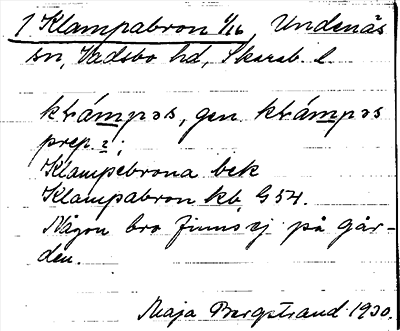 1 Klampabron 1/16, Undenäs
sn, Vadsbo hd, Skarab. l.
klámpəs, gen. klámpəs
prep. i;
Klampebrona bek
Klampabron kb G54.
Någon bro finns ej på går-
den.
Maja Bergstrand 1930.